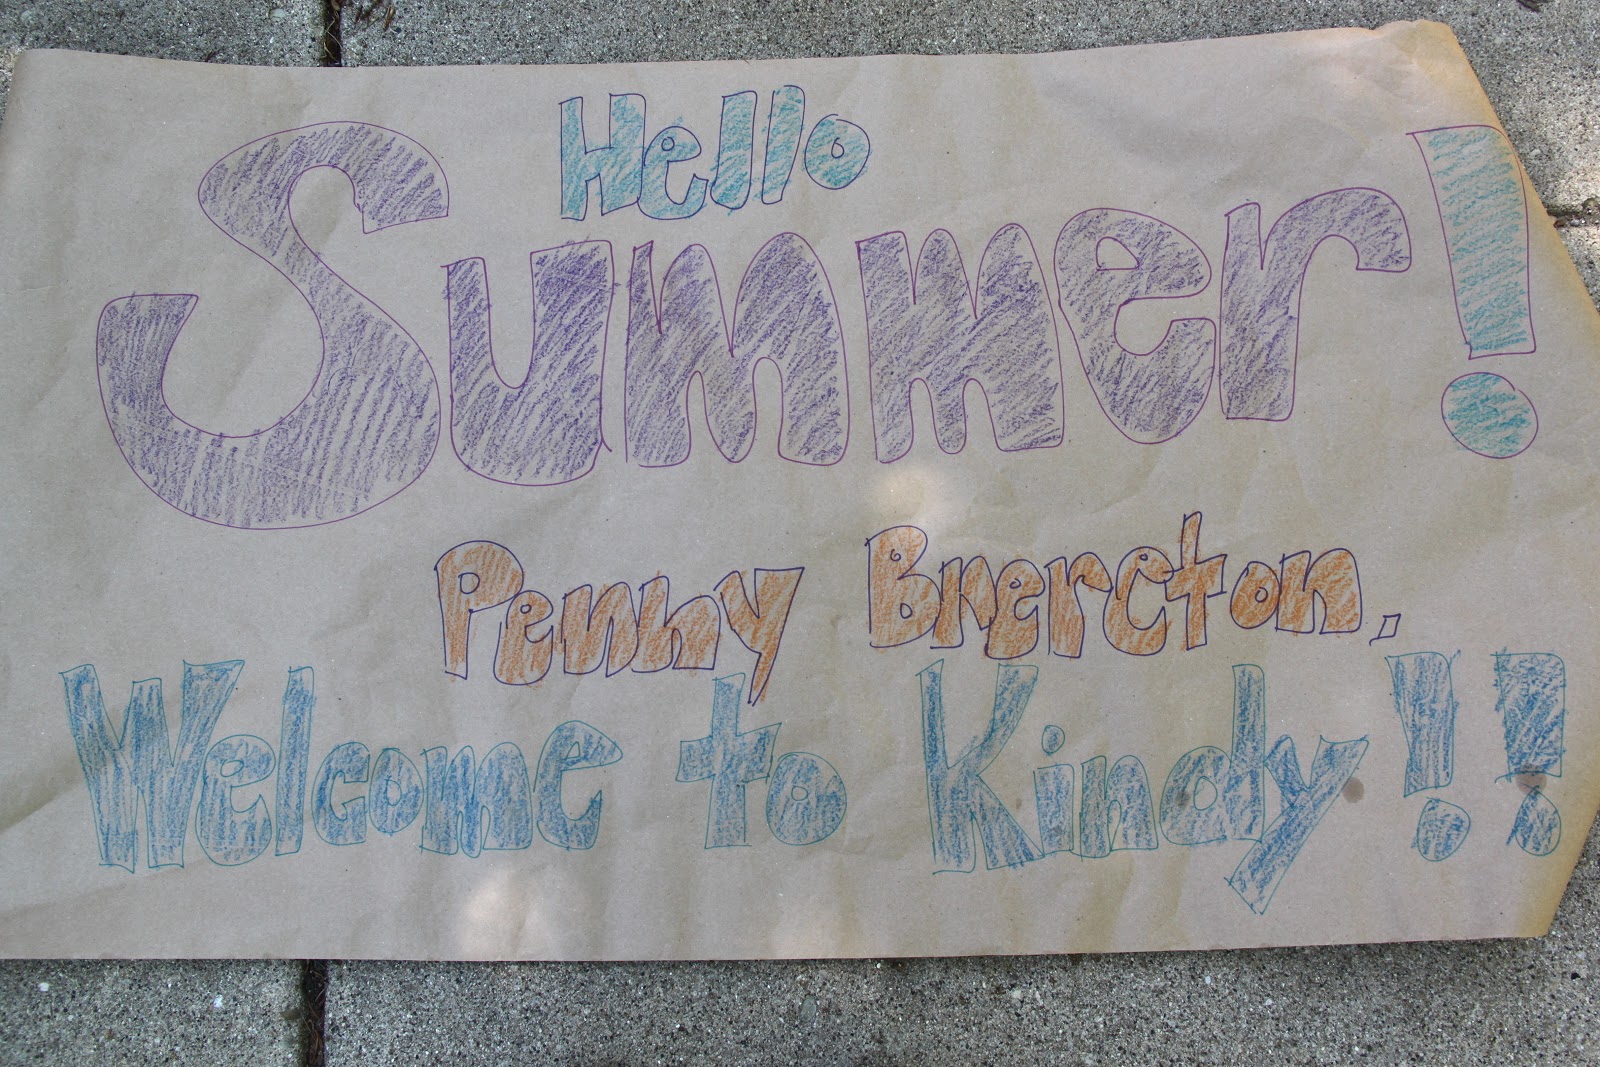 Hello
Summer!
Penny Brereton,
Welcome to Kindy!!